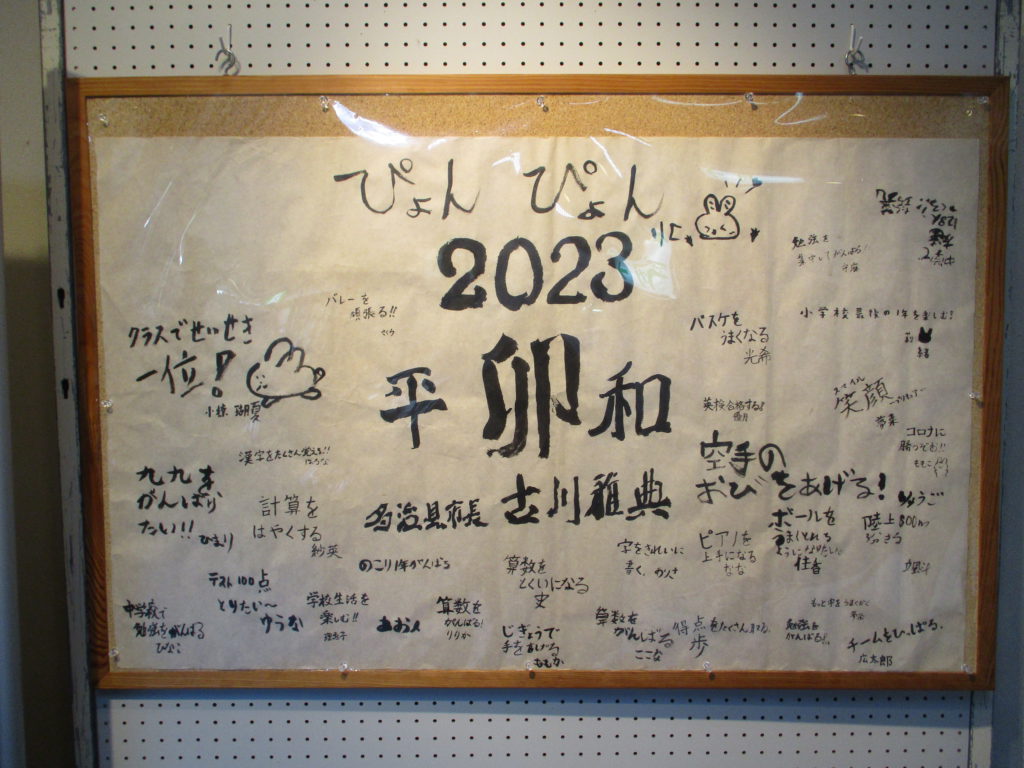 ぴょん ぴょん
2023
平 卯 和
多治見市長 古川雅典
バレーを
頑張る!!
さくら
クラスでせいせき
一位!
小椋 瑚夏
漢字をたくさん覚える!!
はるな
九九 を
がんばり
たい!!
ひまり
計算を
はやくする
紗英
テスト100点
とりたい〜
ゆうな
中学校で
勉強をがんばる
学校生活を
楽しむ!!
のこり1年がんばる
あおい
算数を
がんばる!
りりか
算数を
とくいになる
史
じぎょうで
手をあげる
ももか
字をきれいに
書く。
算数を
がんばる
ここな
得点をたくさん取る
歩
ピアノを
上手になる
なな
空手の
おびをあげる!
英検合格する!
バスケを
うまくなる
光希
勉強を
集中してがんばる!
小学校最後の1年を楽しむ!
笑顔
スマイル
コロナに
勝つぞ!!
ももこ
りゅうご
陸上800m
ボールを
うまくとれる
ようになりたい
佳音
もっと字をうまくかく
勉強を
がんばる!
チームをひっぱる。
広太郎